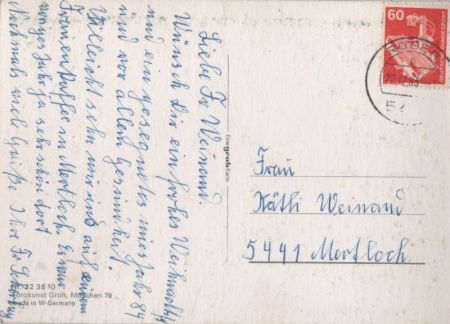 Liebe Fr Weinand.
Wünsch Dir ein frohes Weihnachten
und ein gesegnetes neues Jahr 84
und vor allem Gesundheit.
Vielleicht sehn wir uns auf einem
Frauen Kaffee in Mertloch. Es war
voriges Jahr sehr schön dort
Nochmals viele Grüße. Ihre Fr
60
DEUTSCHE BUNDESPOST
54
Frau
Käthi Weinand
5441 Mertloch
22 36 10
Fotokunst Groh, München 70
Made in W-Germany